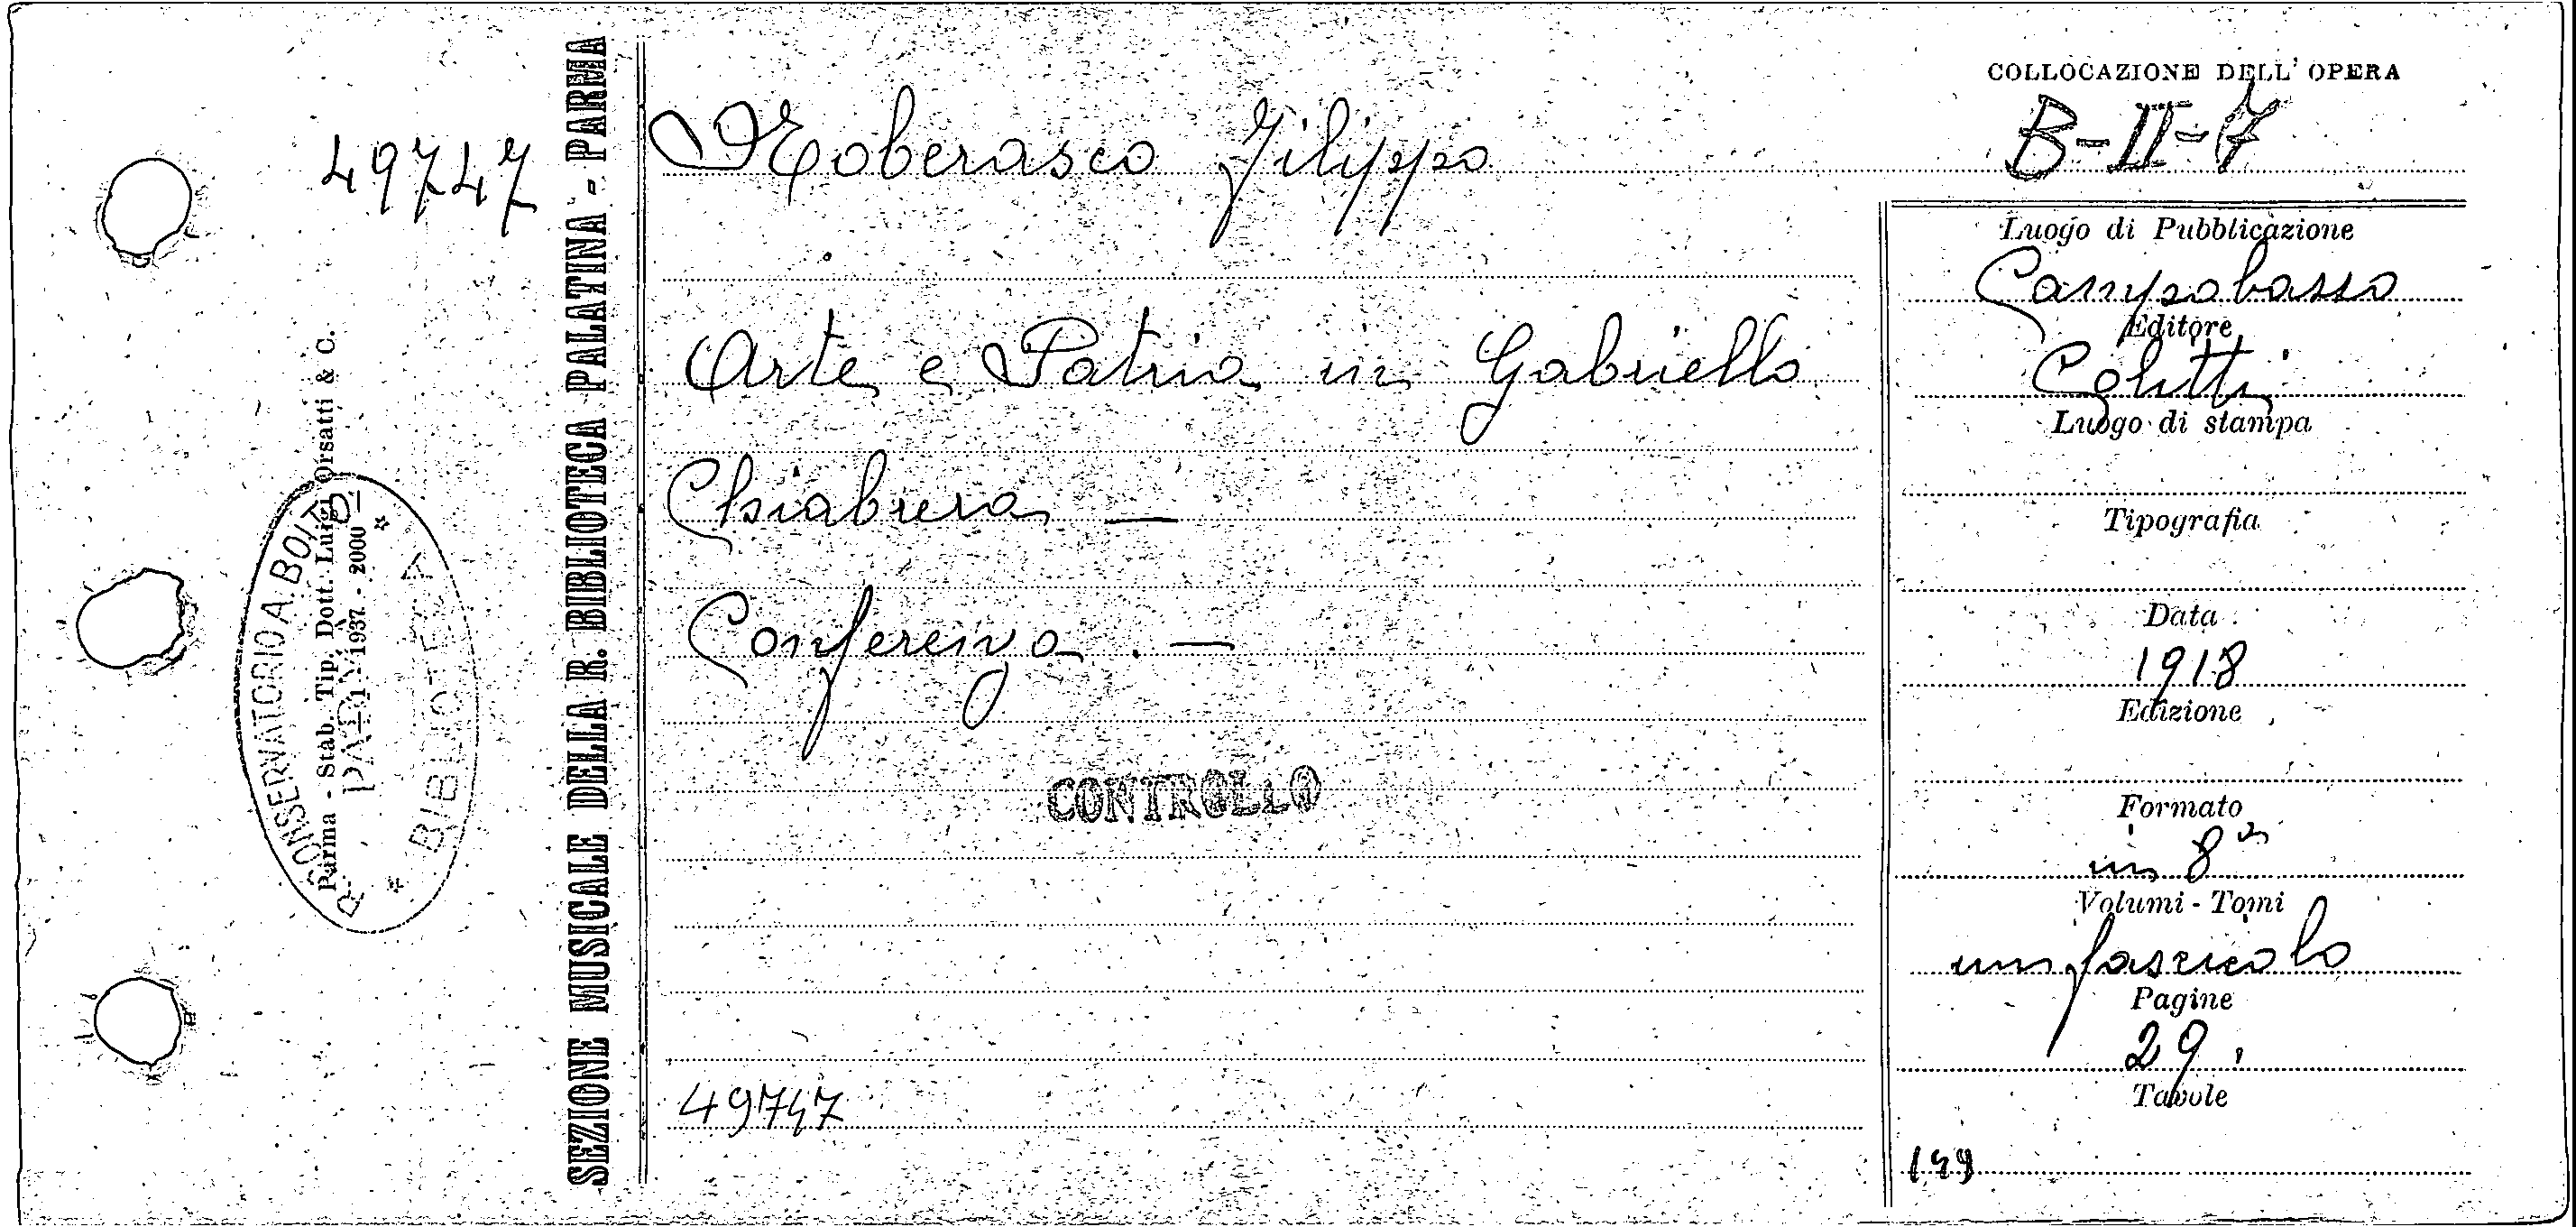 49747
SEZIONE MUSICALE DELLA R. BIBLIOTECA PALATINA - PARMA
Parma - Stab. Tip. Dott. Luigi Orsatti & C.
1937 - 2000
R. CONSERVATORIO A. BOITO
PARMA
BIBLIOTECA
Noberasco Filippo
Arte e Patria in Gabriello
Chiabrera —
Conferenza . —
CONTROLLO
49747
COLLOCAZIONE DELL' OPERA
B-II-7
Luogo di Pubblicazione
Campobasso
Editore
Colitti
Luogo di stampa
Tipografia
Data
1918
Edizione
Formato
in 8°
Volumi - Tomi
un fascicolo
Pagine
29.
Tavole
149